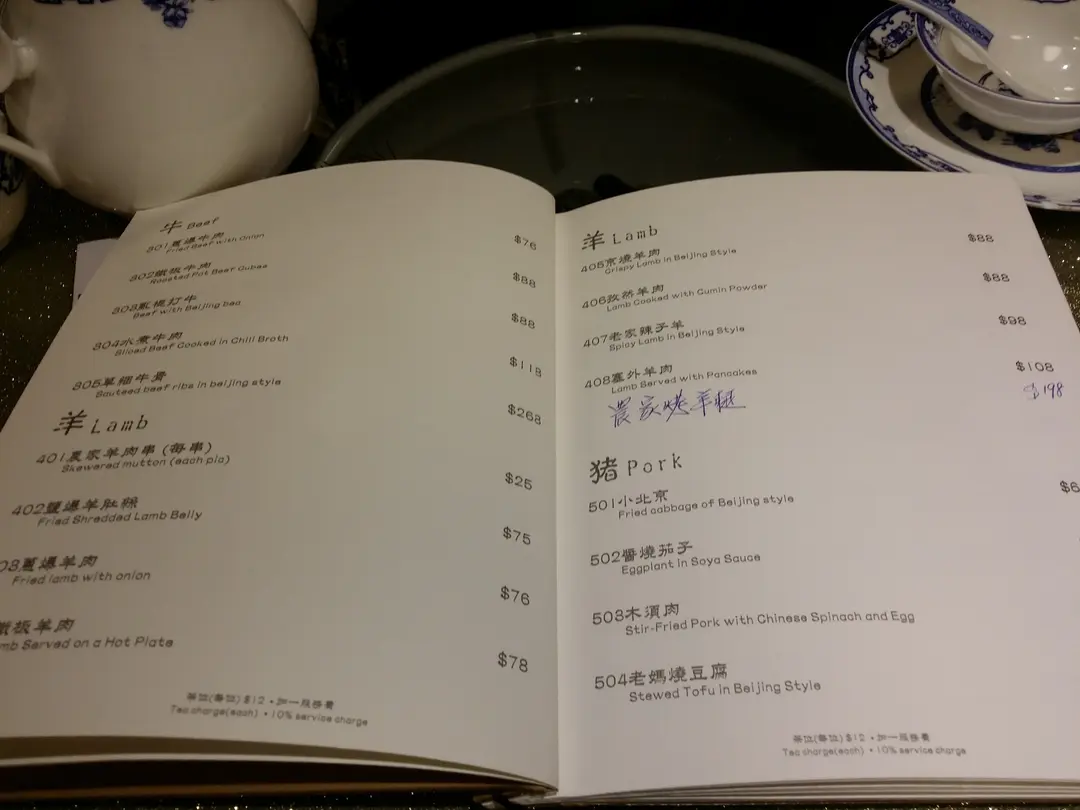 牛 Beef
301蔥爆牛肉 $76
Fried Beef with Onion
302鐵板牛肉 $88
Roasted Pot Beef Cubes
303亂棍打牛 $88
Beef with Beijing
304水煮牛肉 $118
Sliced Beef Cooked in Chili Broth
305 $268
Sauteed beef ribs in beijing style
羊 Lamb
401農家羊肉串 (每串) $25
Skewered mutton (each pic)
402鹽爆羊肚絲 $75
Fried Shredded Lamb Belly
03蔥爆羊肉 $76
Fried lamb with onion
鐵板羊肉 $78
mb Served on a Hot Plate
茶位(每位) $12 •加一服務費
Tea charge(each) • 10% service charge
羊 Lamb
405京燒羊肉 $88
Crispy Lamb in Beijing Style
406孜然羊肉 $88
Lamb Cooked with Cumin Powder
407老家辣子羊 $98
Spicy Lamb in Beijing Style
408塞外羊肉 $108
Lamb Served with Pancakes
農家烤羊腿 $198
猪 Pork
501小北京 $6
Fried cabbage of Beijing style
502醬燒茄子
Eggplant in Soya Sauce
503木須肉
Stir-Fried Pork with Chinese Spinach and Egg
504老媽燒豆腐
Stewed Tofu in Beijing Style
茶位(每位) $12 •加一服務費
Tea charge(each) • 10% service charge